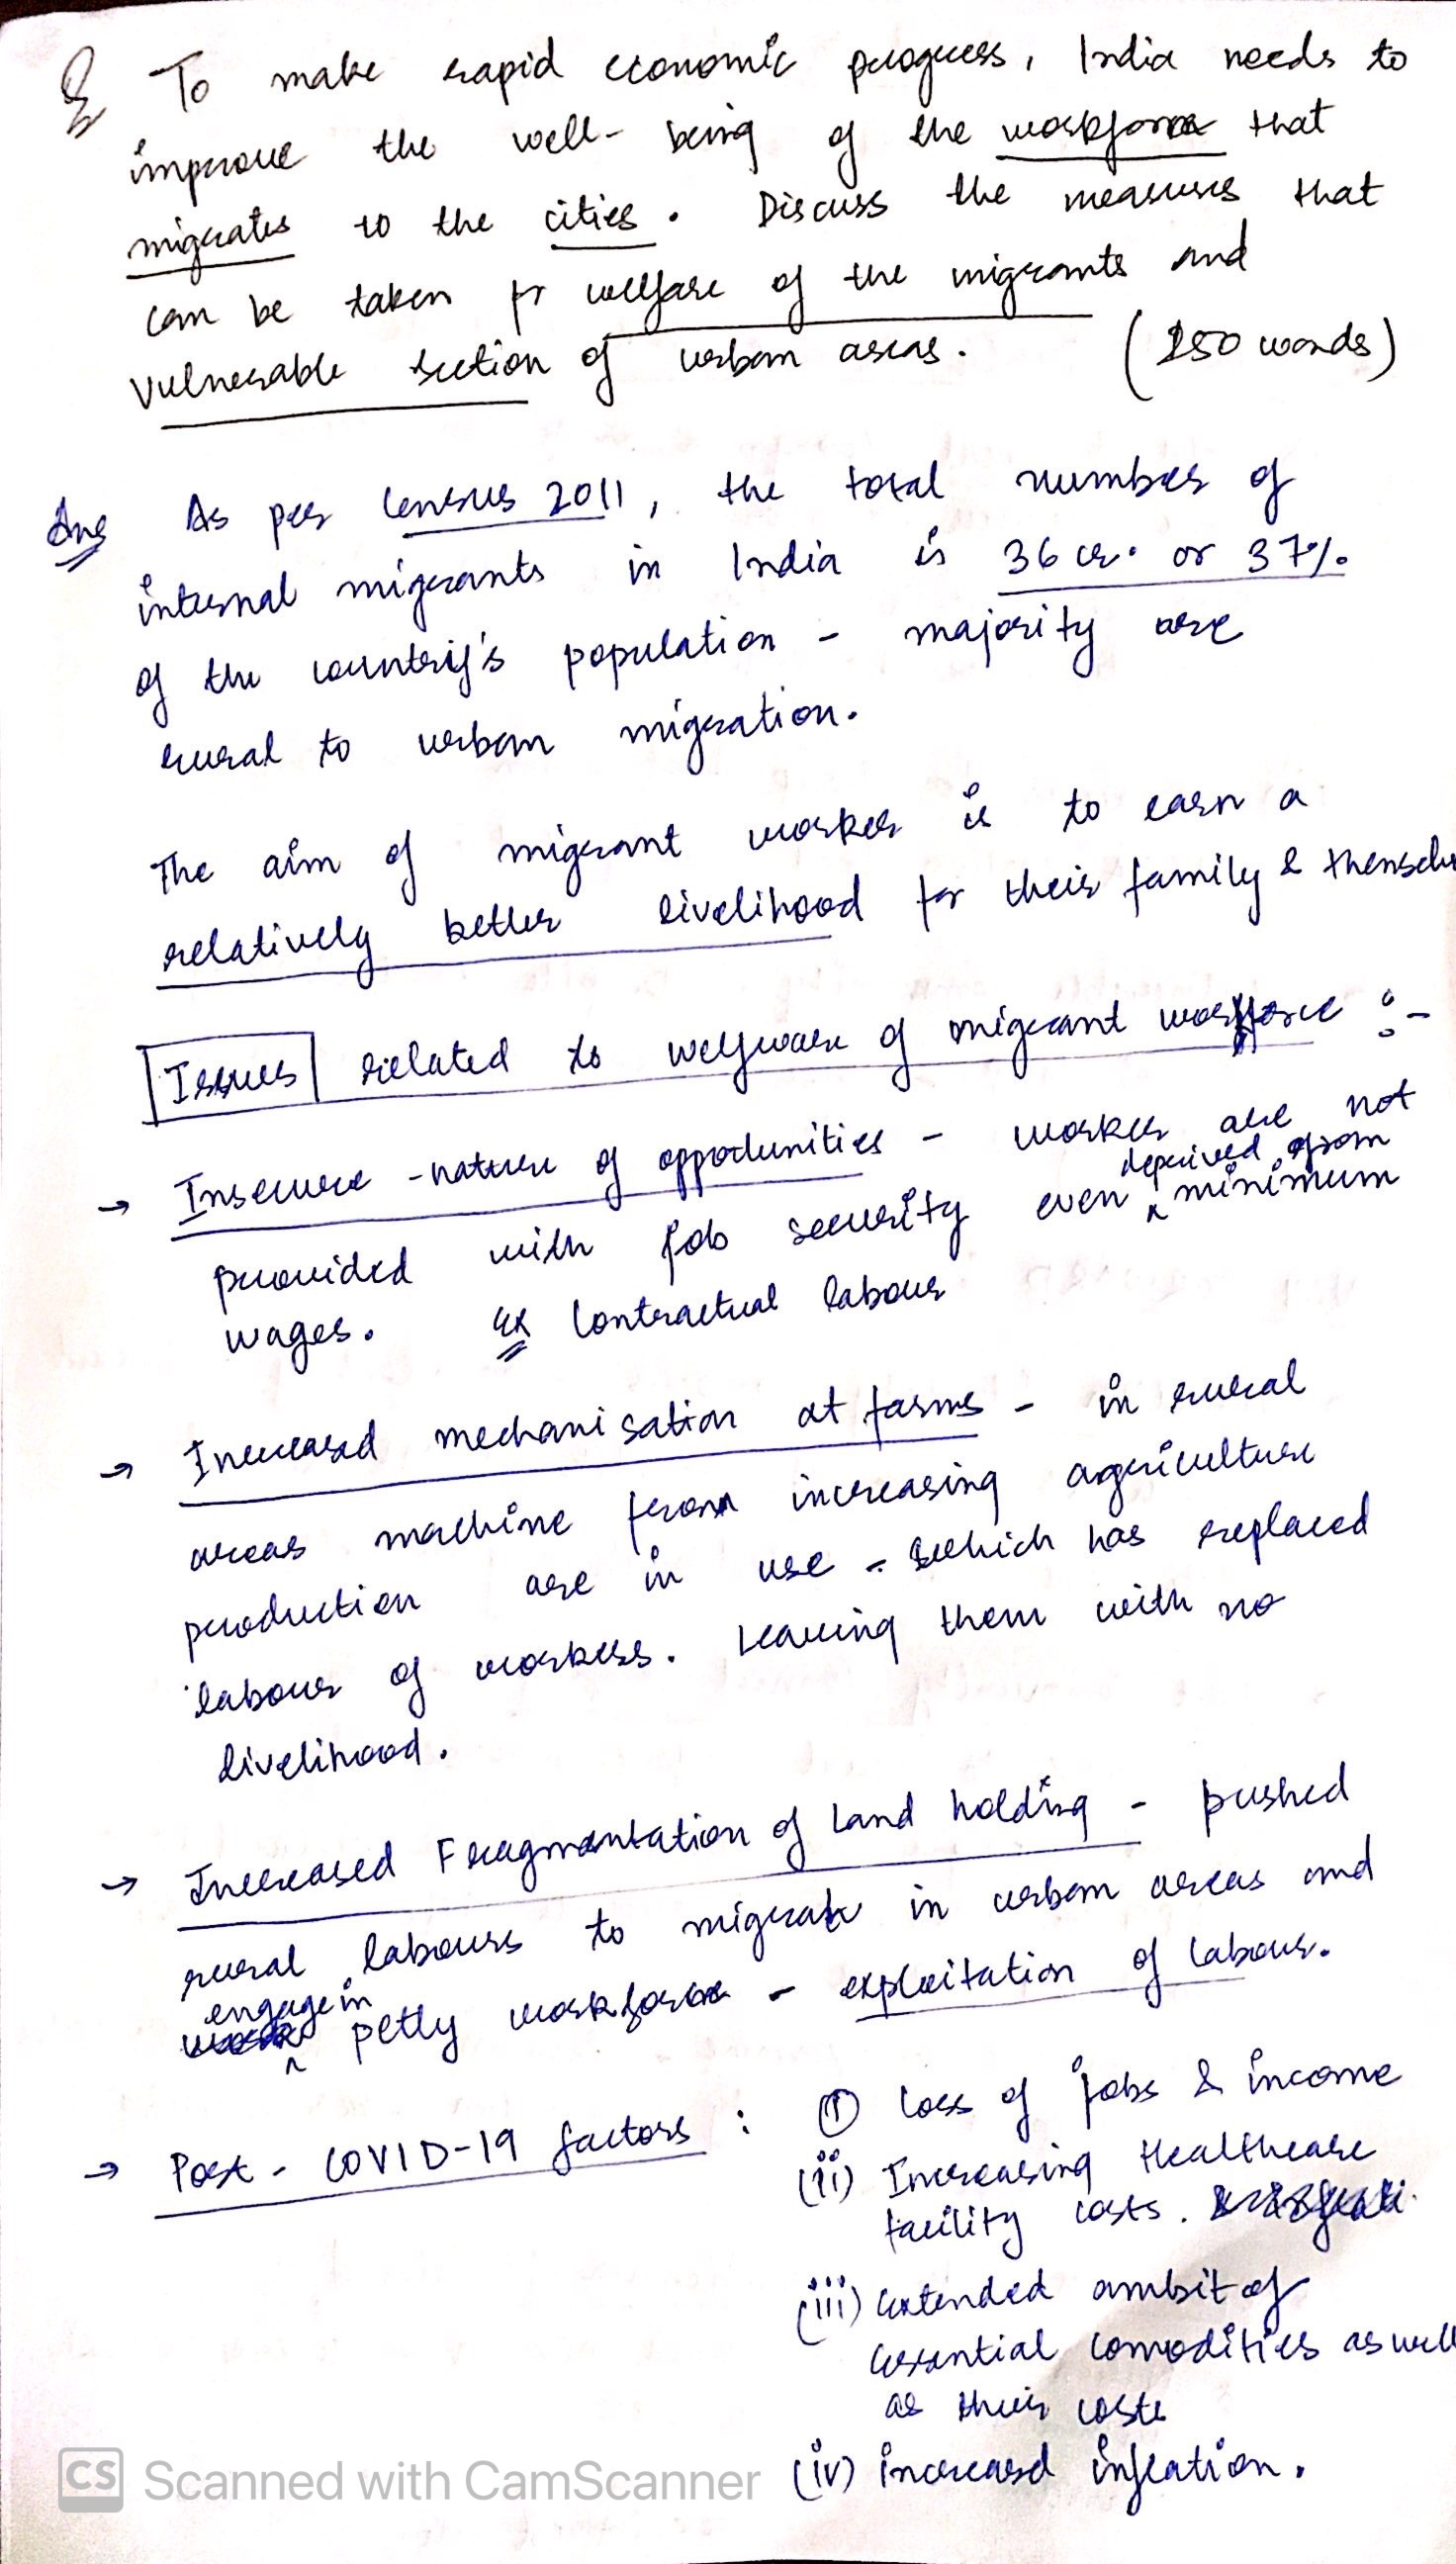 Q To make rapid economic progress, India needs to
improve the well-being of the workforce that
migrates to the cities. Discuss the measures that
can be taken fr welfare of the migrants and
vulnerable section of urban areas. (250 words)
Ans As per Census 2011, the total number of
internal migrants in India is 36 cr. or 37%.
of the country's population - majority are
rural to urban migration.
The aim of migrant worker is to earn a
relatively better livelihood for their family &
Issues related to welfware of migrant workforce :-
→ Insecure -nature of opportunities - worker are not
deprived from
provided with job security even ^ minimum
wages. Ex Contractual labour
→ Increased mechanisation at farms - in rural
areas machine from increasing agriculture
production are in use - which has replaced
labour of workers. Leaving them with no
livelihood.
→ Increased Fragmentation of Land holding - pushed
rural labours to migrate in urban areas and
engage in
^ petty workforce - exploitation of labour.
→ Post - COVID-19 factors : (i) Loss of jobs & income
(ii) Increasing Healthcare
facility costs.
(iii) Extended ambit of
Essential comodities as well
as their costs
(iv) increased inflation.
CS Scanned with CamScanner